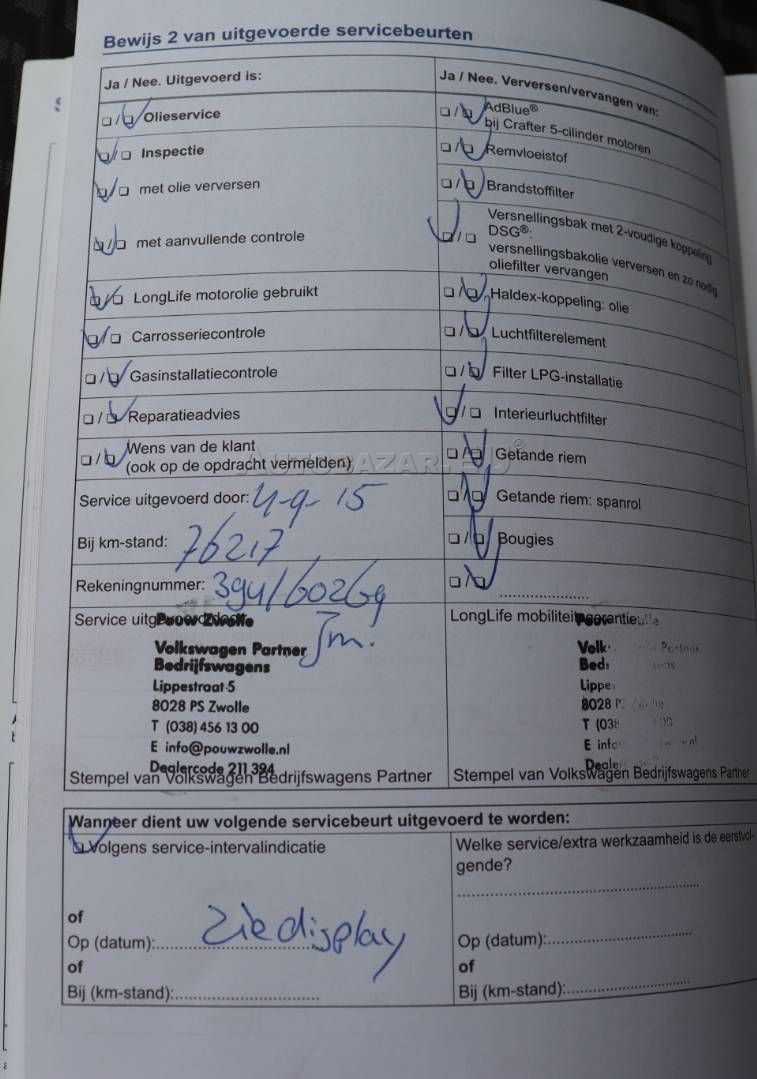 Bewijs 2 van uitgevoerde servicebeurten
Ja / Nee. Uitgevoerd is:
☐/☑ Olieservice
☑/☐ Inspectie
☑/☐ met olie verversen
☑/☐ met aanvullende controle
☑/☐ LongLife motorolie gebruikt
☑/☐ Carrosseriecontrole
☐/☑ Gasinstallatiecontrole
☐/☑ Reparatieadvies
☐/☑ Wens van de klant
(ook op de opdracht vermelden)
Service uitgevoerd door: 4-9-15
Bij km-stand: 76217
Rekeningnummer:
Service
Pouw Zwolle
Volkswagen Partner
Bedrijfswagens
Lippestraat 5
8028 PS Zwolle
T (038) 456 13 00
E info@pouwzwolle.nl
Dealercode 211 394
Stempel van Volkswagen Bedrijfswagens Partner
Ja / Nee. Verversen/vervangen van:
☐/☑ AdBlue®
bij Crafter 5-cilinder motoren
☐/☑ Remvloeistof
☐/☑ Brandstoffilter
Versnellingsbak met 2-voudige koppeling
☑/☐ DSG®:
versnellingsbakolie verversen en zo nodig
oliefilter vervangen
☐/☑ Haldex-koppeling: olie
☐/☑ Luchtfilterelement
☐/☑ Filter LPG-installatie
☑/☐ Interieurluchtfilter
☐/☑ Getande riem
☐/☑ Getande riem: spanrol
☐/☑ Bougies
☐/☑ ......................
LongLife
Stempel van Volkswagen Bedrijfswagens Partner
AUTOBAZAR.EU®
Wanneer dient uw volgende servicebeurt uitgevoerd te worden:
☑ Volgens service-intervalindicatie
of
Op (datum): zie display
of
Bij (km-stand):
Welke service/extra werkzaamheid is de eerstvol-
gende?
Op (datum):
of
Bij (km-stand):